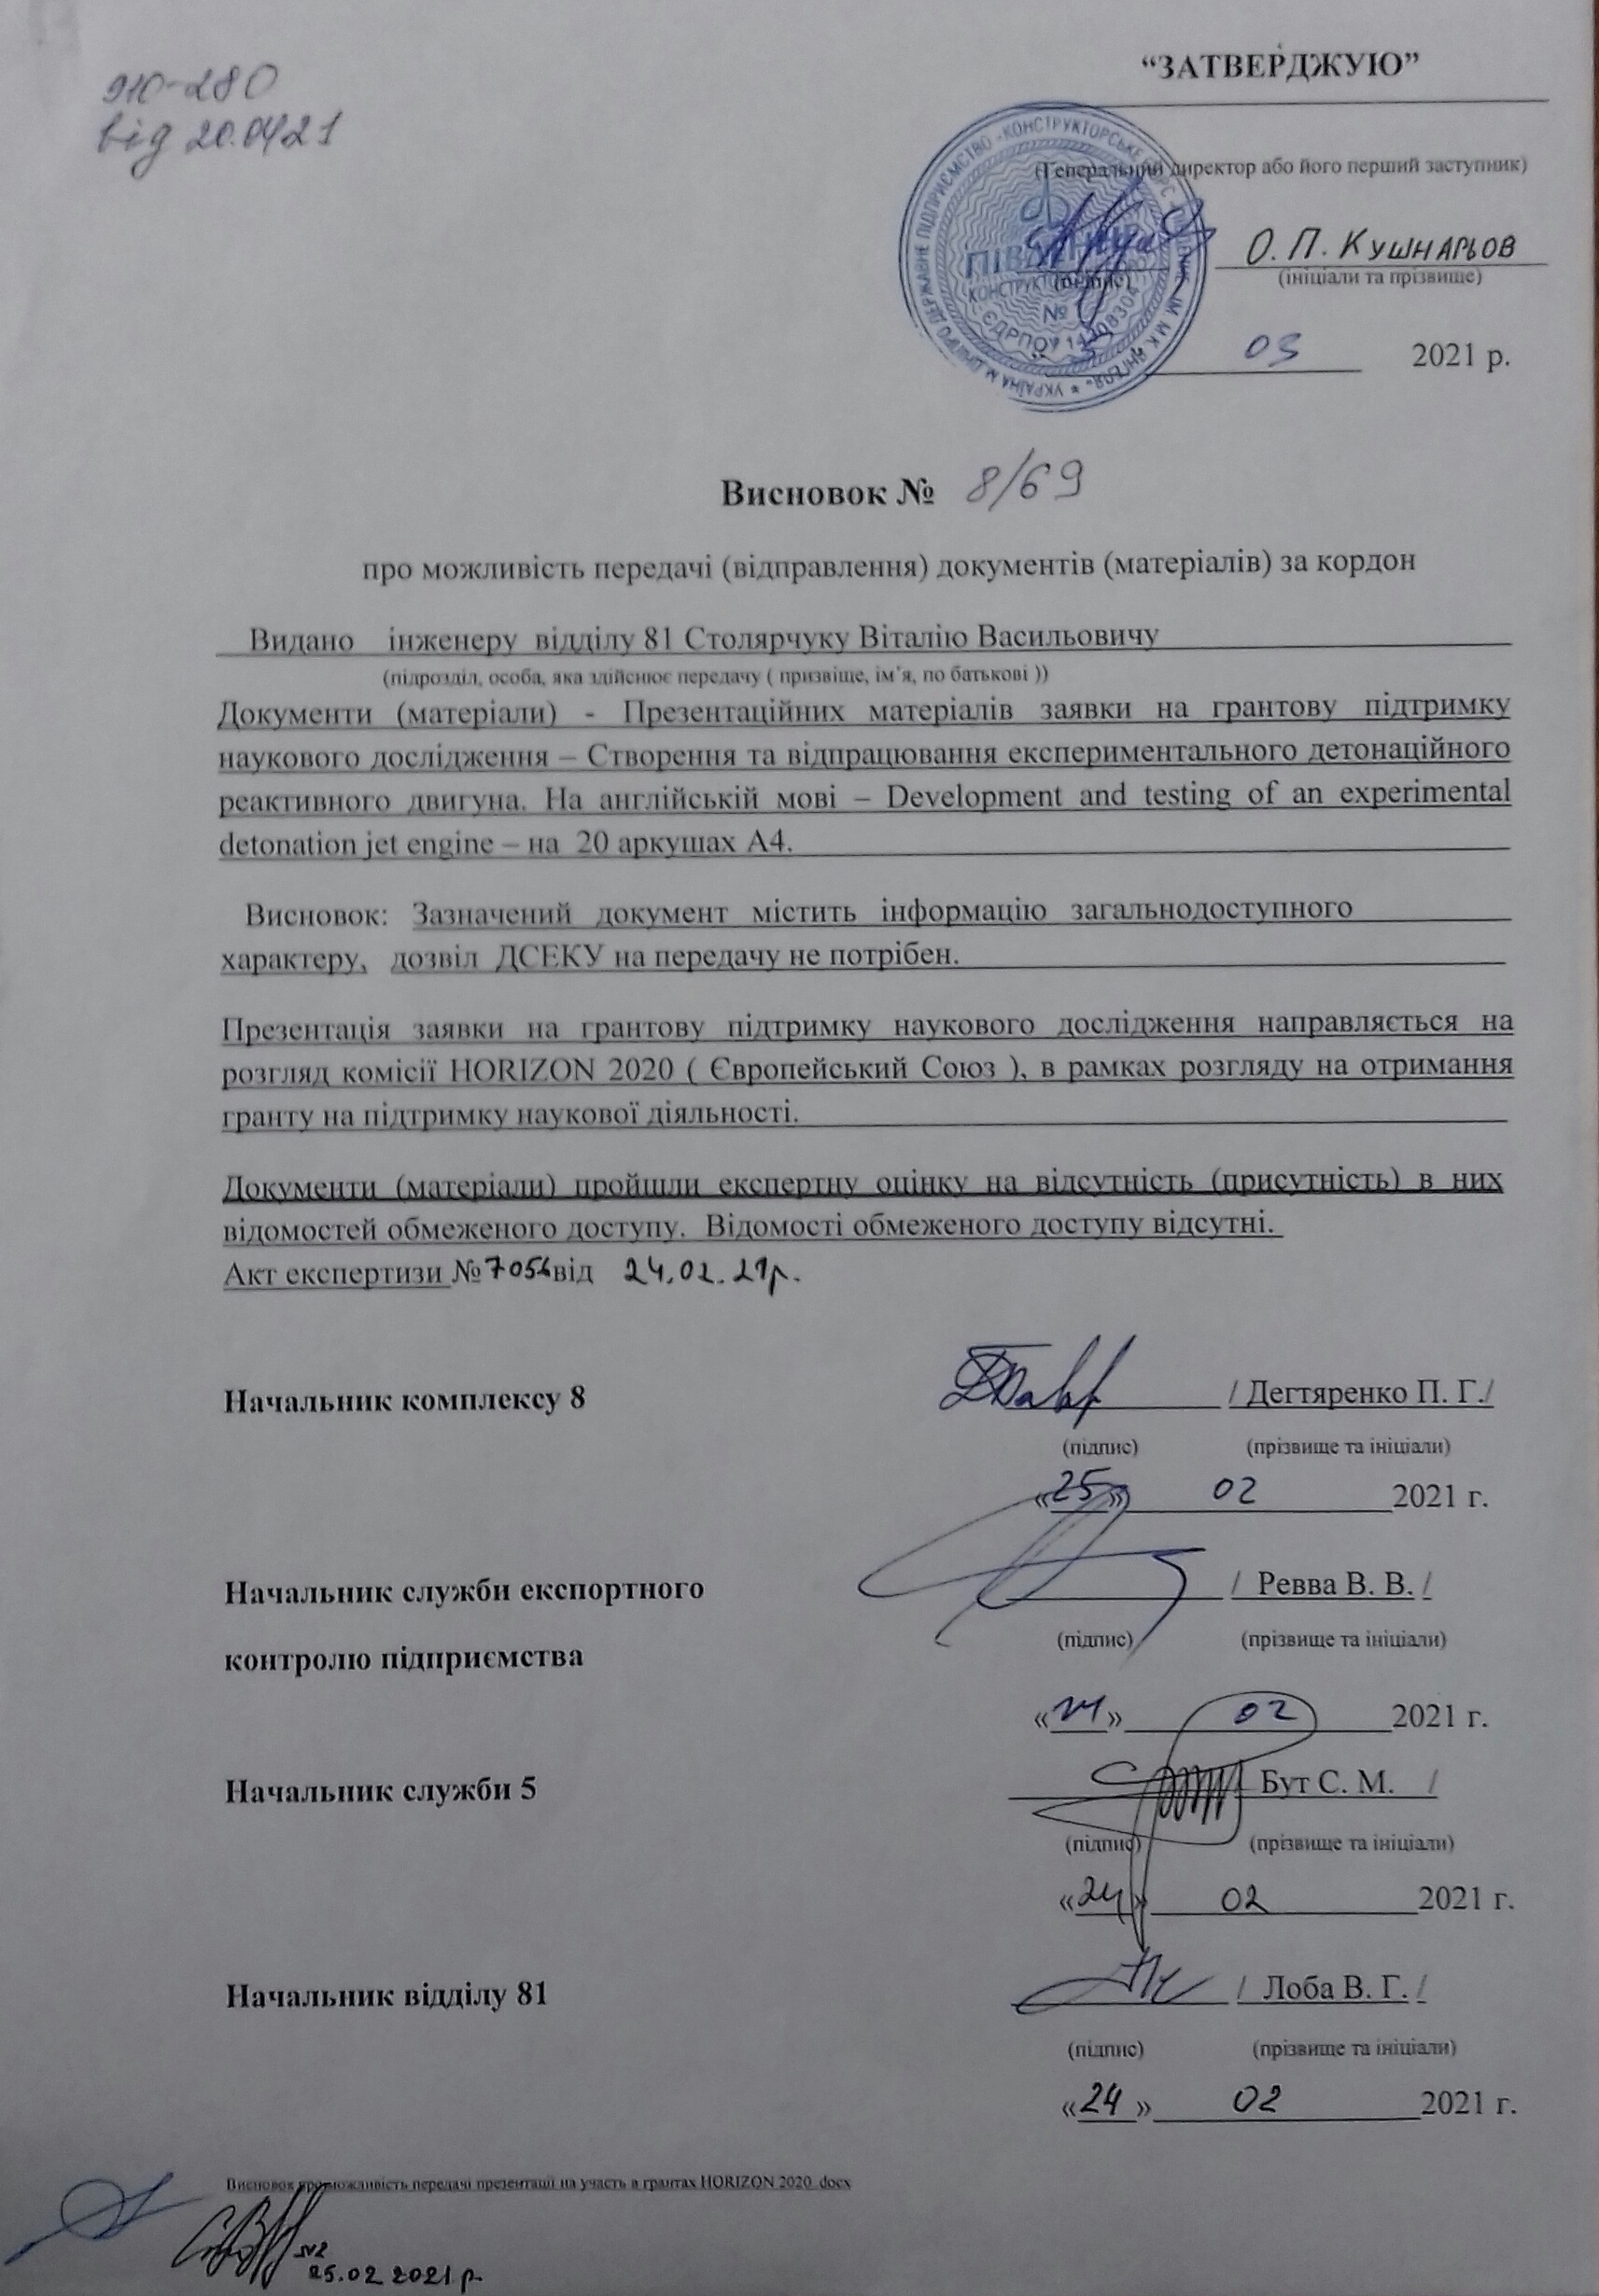 “ЗАТВЕРДЖУЮ”
910-280
від 20.04.21
(Генеральний директор або його перший заступник)
О. П. Кушнарьов
(підпис) (ініціали та прізвище)
03 2021 р.
ДЕРЖАВНЕ ПІДПРИЄМСТВО «КОНСТРУКТОРСЬКЕ БЮРО «ПІВДЕННЕ» ІМ. М.К. ЯНГЕЛЯ» * УКРАЇНА М.ДНІПРО
Висновок № 8/69
про можливість передачі (відправлення) документів (матеріалів) за кордон
Видано інженеру відділу 81 Столярчуку Віталію Васильовичу
(підрозділ, особа, яка здійснює передачу ( призвіще, ім’я, по батькові ))
Документи (матеріали) - Презентаційних матеріалів заявки на грантову підтримку
наукового дослідження – Створення та відпрацювання експериментального детонаційного
реактивного двигуна. На англійській мові – Development and testing of an experimental
detonation jet engine – на 20 аркушах А4.
Висновок: Зазначений документ містить інформацію загальнодоступного
характеру, дозвіл ДСЕКУ на передачу не потрібен.
Презентація заявки на грантову підтримку наукового дослідження направляється на
розгляд комісії HORIZON 2020 ( Європейський Союз ), в рамках розгляду на отримання
гранту на підтримку наукової діяльності.
Документи (матеріали) пройшли експертну оцінку на відсутність (присутність) в них
відомостей обмеженого доступу. Відомості обмеженого доступу відсутні.
Акт експертизи № від 24.02.21р.
Начальник комплексу 8 / Дегтяренко П. Г./
(підпис) (прізвище та ініціали)
«25» 02 2021 г.
Начальник служби експортного / Ревва В. В. /
(підпис) (прізвище та ініціали)
контролю підприємства
«24» 02 2021 г.
Начальник служби 5 Бут С. М. /
(підпис) (прізвище та ініціали)
«24» 02 2021 г.
Начальник відділу 81 / Лоба В. Г. /
(підпис) (прізвище та ініціали)
«24» 02 2021 г.
Висновок про можливість передачі презентації на участь в грантах HORIZON 2020 .docx
25.02 2021 р.